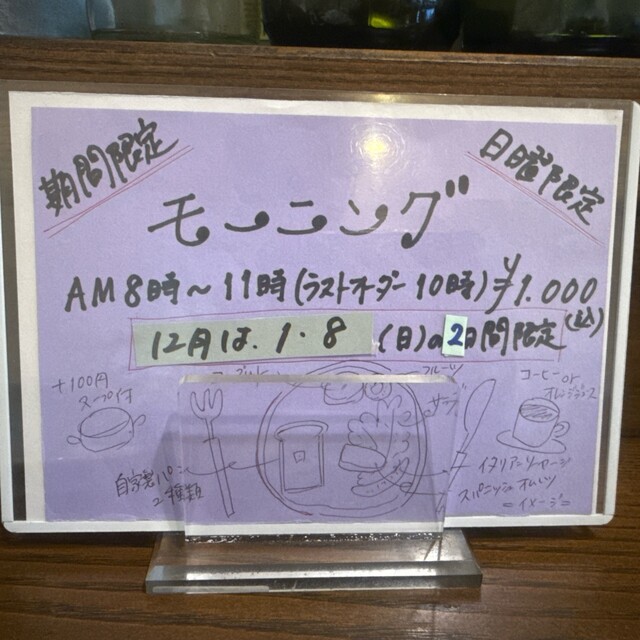 期間限定
日曜限定
モーニング
AM8時～11時(ラストオーダー10時)¥1.000
(込)
12月は、1・8(日)の2日間限定
+100円
スープ付
フルーツ
サラダ
コーヒーor
オレンジジュース
自家製パン
2種類
イタリアンソーセージ
スパニッシュオムレツ
=イメージ=